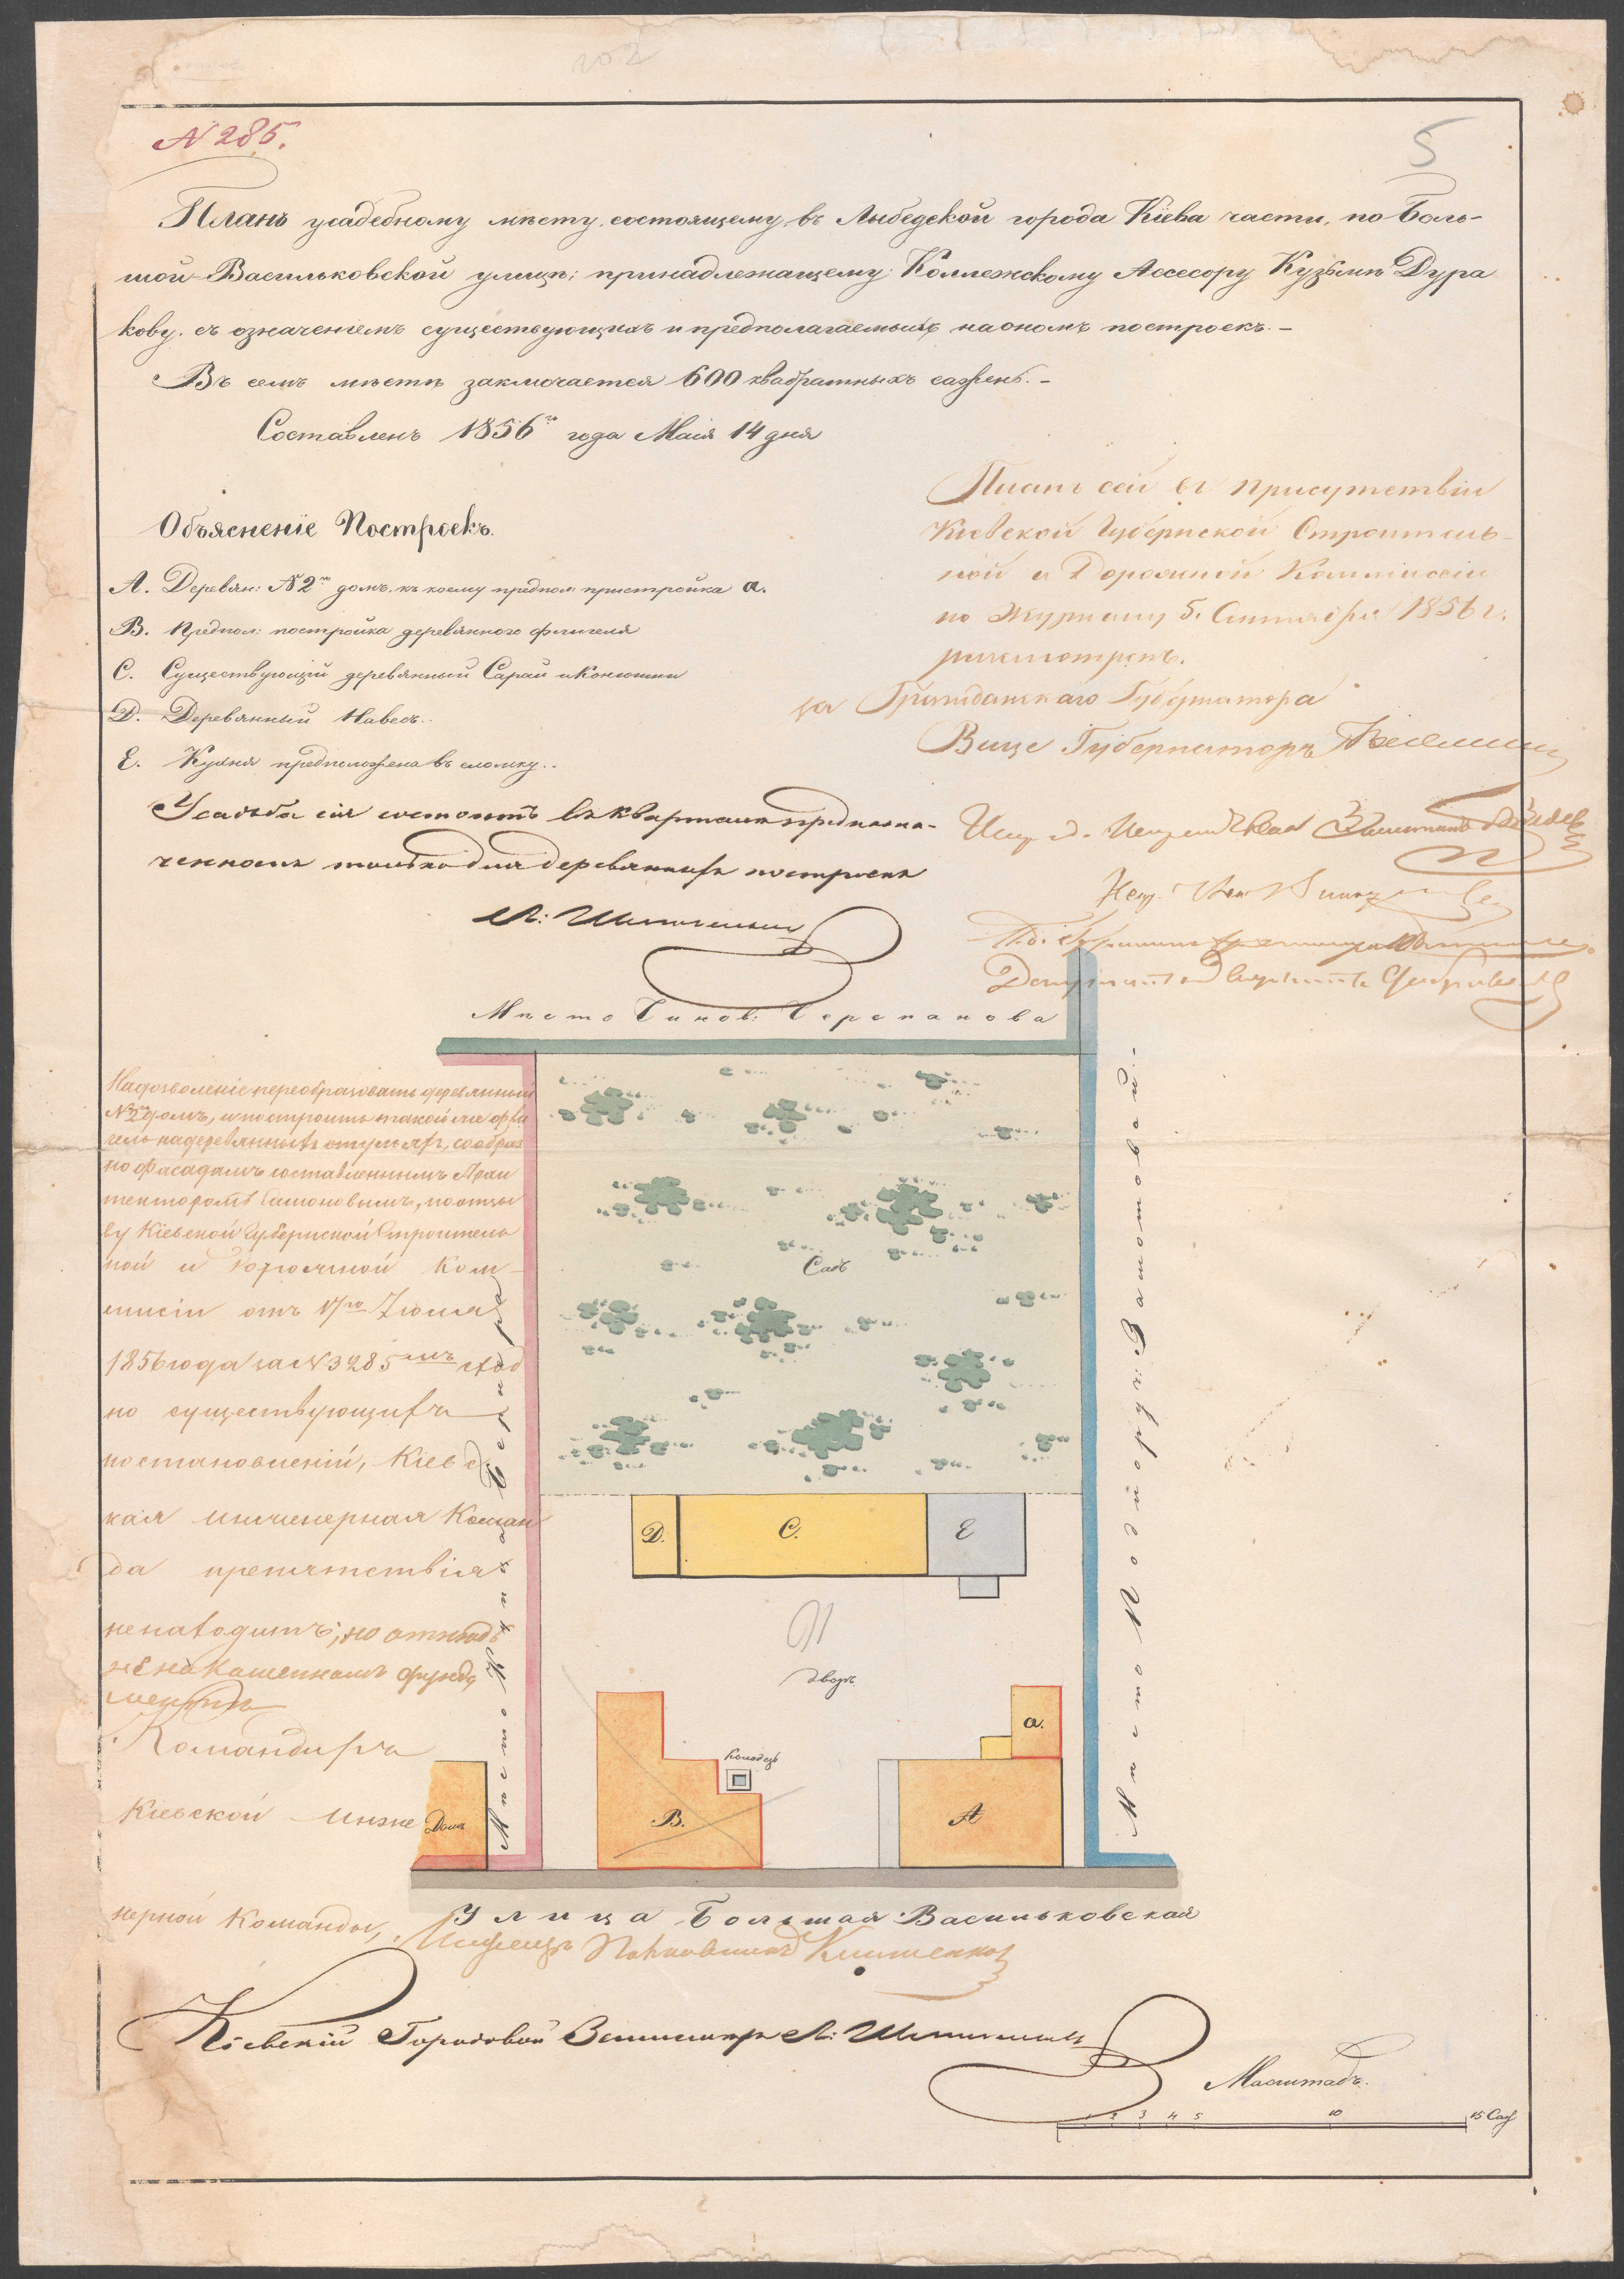 202
N 285.
5
Планъ усадебному мѣсту, состоящему въ Лыбедской города Кіева части, по Боль-
шой-Васильковской улицѣ; принадлежащему: Коллежскому Ассесору Кузьмѣ Дура
кову. съ означеніемъ существующихъ и предполагаемыхъ на ономъ построекъ.-
Въ семъ мѣстѣ заключается 600 квадратныхъ саженъ.-
Составленъ 1856го года Маія 14 дня
Объясненіе Построекъ.
А. Деревян: N 2й домъ, къ коему предпол: пристройка а.
В. Предпол: постройка деревяннаго флигеля
С. Существующій деревянный Сарай и Конюшни
D. Деревянный Навесъ..
Е. Кухня предположена въ сломку..
Усадьба сія состоитъ въ кварталѣ предназна-
ченномъ только для деревянныхъ построекъ
Планъ сей въ присутствіи
Кіевской Губернской Строитель-
ной и Дорожной Коммиссіи
по Журналу 5. Сентября 1856 г.
разсмотренъ.
за Гражданскаго Губернатора
Вице Губернаторъ
Мѣсто Чинов: Черепанова
На дозволеніе переобразовать деревянный
N 2й домъ, и построить такой же фли
гель на деревянныхъ стульяхъ, сообраз
но фасадамъ составленнымъ Архи
текторомъ Самоновымъ, по отзы
ву Кіевской Губернской Строитель
ной и дорожной Ком-
мисіи отъ 17го Іюля
1856 года за N 3285мъ сход
но существующихъ
постановленій, Кіевс
кая инженерная Коман
да препятствія
не находитъ, но отнюдь
не на каменномъ фунда
ментѣ
Командиръ
Кіевской Инже
нерной Команды,
Мѣсто Купца
Садъ
Мѣсто Подпоруч:
D.
С.
Е
дворъ
Колодезь
а.
В.
А
Домъ
Улица Большая Васильковская
Инженеръ Полковникъ
Кіевскій Городовой Землемѣръ
Масштабъ.
1 2 3 4 5 10 15 Саж